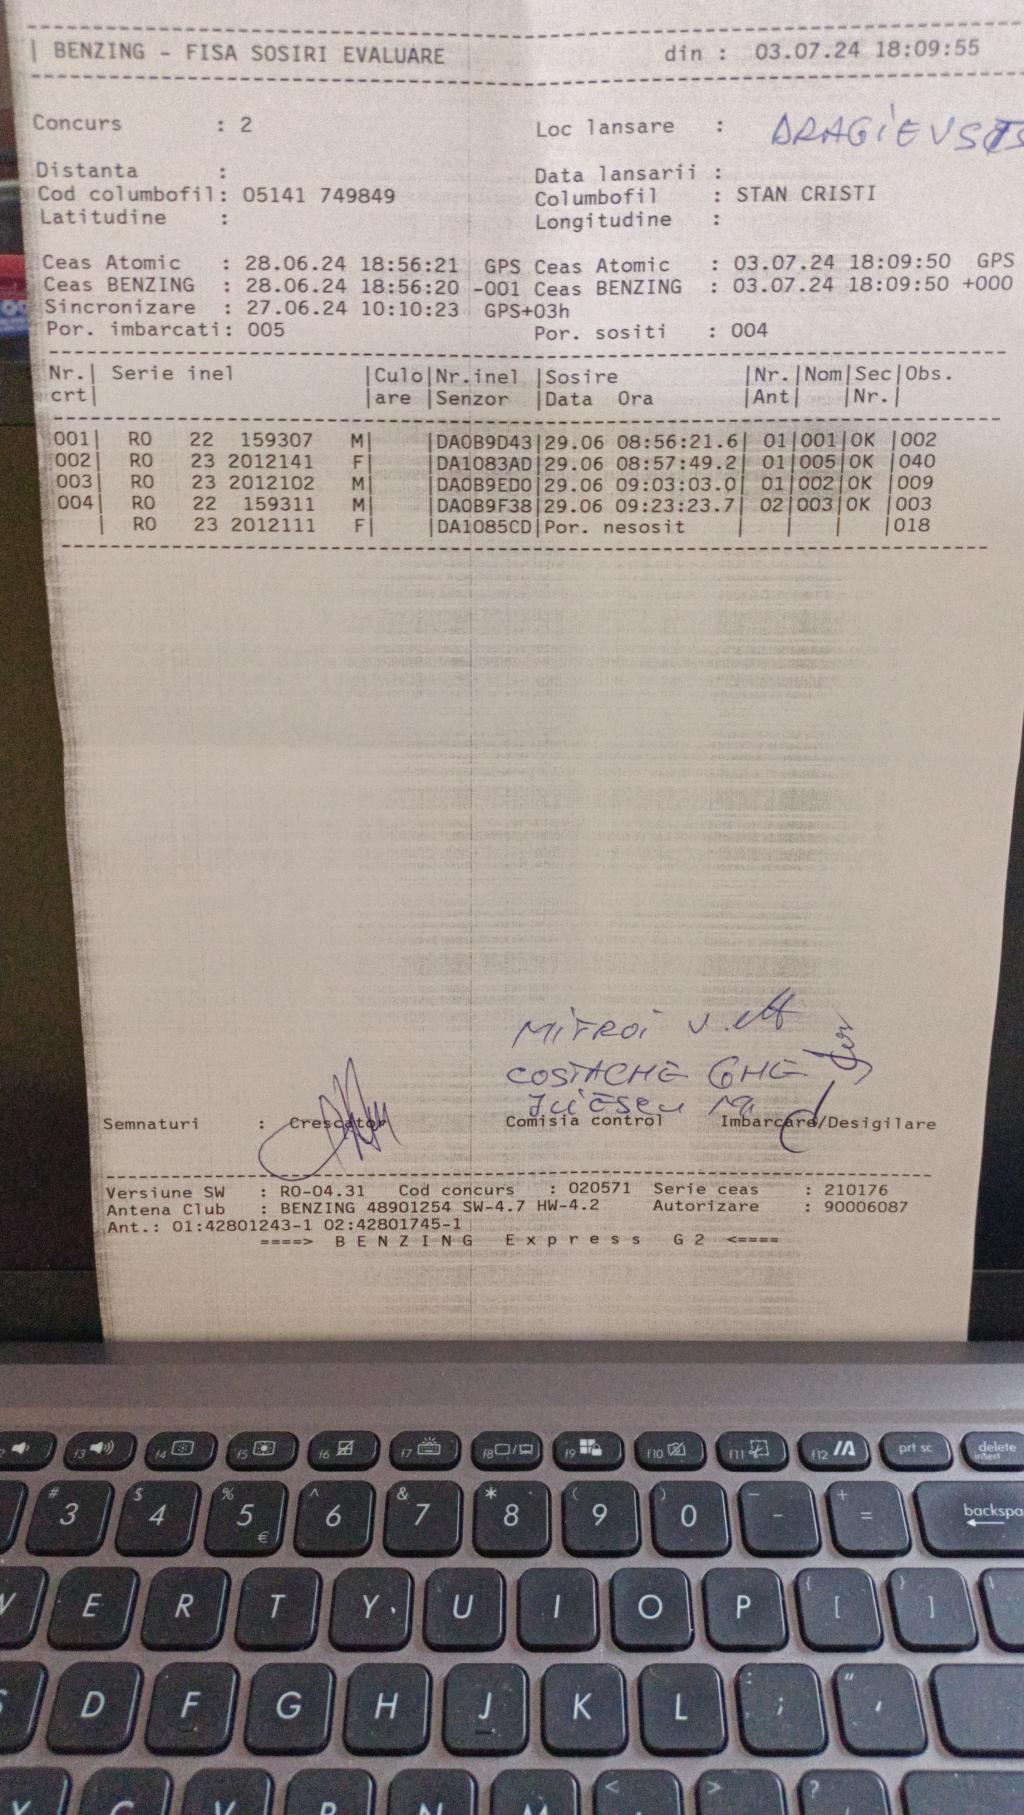 | BENZING - FISA SOSIRI EVALUARE din : 03.07.24 18:09:55
Concurs : 2 Loc lansare :
Distanta : Data lansarii :
Cod columbofil: 05141 749849 Columbofil : STAN CRISTI
Latitudine : Longitudine :
Ceas Atomic : 28.06.24 18:56:21 GPS Ceas Atomic : 03.07.24 18:09:50 GPS
Ceas BENZING : 28.06.24 18:56:20 -001 Ceas BENZING : 03.07.24 18:09:50 +000
Sincronizare : 27.06.24 10:10:23 GPS+03h
Por. imbarcati: 005 Por. sositi : 004
Nr.| Serie inel |Culo|Nr.inel |Sosire |Nr.|Nom|Sec|Obs.
crt| |are |Senzor |Data Ora |Ant| |Nr.|
001| RO 22 159307 M| |DA0B9D43|29.06 08:56:21.6| 01|001|OK |002
002| RO 23 2012141 F| |DA1083AD|29.06 08:57:49.2| 01|005|OK |040
003| RO 23 2012102 M| |DA0B9ED0|29.06 09:03:03.0| 01|002|OK |009
004| RO 22 159311 M| |DA0B9F38|29.06 09:23:23.7| 02|003|OK |003
| RO 23 2012111 F| |DA1085CD|Por. nesosit | | | |018
MITROI V.
COSTACHE GHE
Semnaturi : Crescator Comisia control Imbarcare/Desigilare
Versiune SW : RO-04.31 Cod concurs : 020571 Serie ceas : 210176
Antena Club : BENZING 48901254 SW-4.7 HW-4.2 Autorizare : 90006087
Ant.: 01:42801243-1 02:42801745-1
====> B E N Z I N G E x p r e s s G 2 <====
f3 f4 f5 f6 f7 f8 f9 f10 f11 f12 prt sc delete
insert
# $ % ^ & * ( ) _ +
3 4 5 € 6 7 8 9 0 - = backspa
E R T Y U I O P { [ } ]
D F G H J K L : ; " '
< > ?